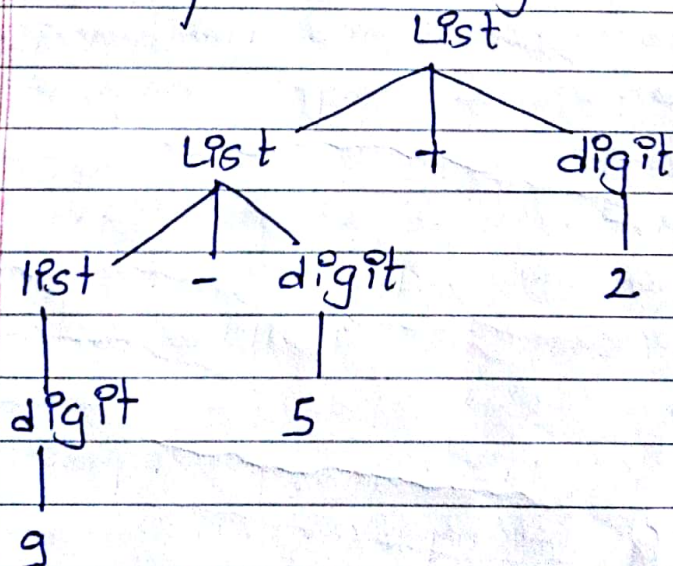 List
List + digit
list - digit 2
digit 5
9